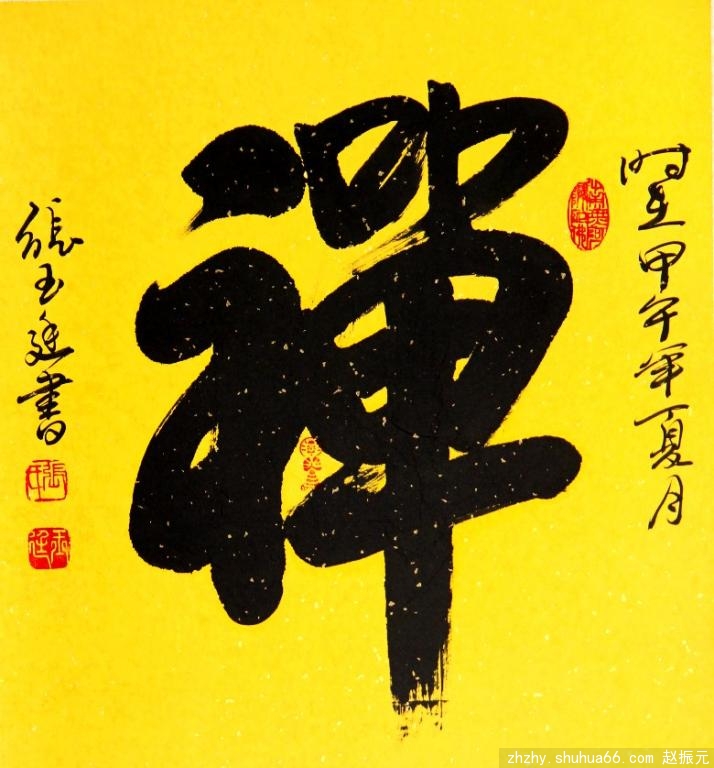 时在甲午年夏月
禪
張玉廷書
zhzhy.shuhua66.com 赵振元